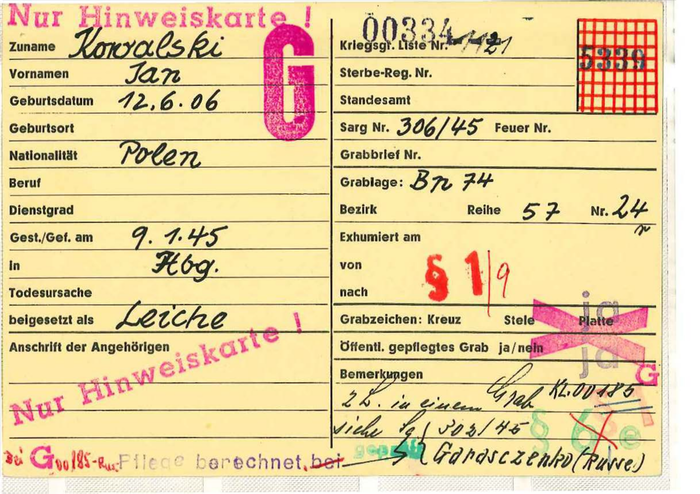 Nur Hinweiskarte !
Zuname Kowalski
Vornamen Jan
Geburtsdatum 12.6.06
Geburtsort
Nationalität Polen
Beruf
Dienstgrad
Gest./Gef. am 9.1.45
in Hbg.
Todesursache
beigesetzt als Leiche
Anschrift der Angehörigen
Nur Hinweiskarte !
G
00334
Kriegsgr. Liste Nr. 1121
5339
Sterbe-Reg. Nr.
Standesamt
Sarg Nr. 306/45 Feuer Nr.
Grabbrief Nr.
Grablage: Bn 74
Bezirk Reihe 57 Nr. 24
Exhumiert am
von
nach
§ 1/9
ja
Grabzeichen: Kreuz Stele Platte
ja
Öffentl. gepflegtes Grab ja/nein
G
Bemerkungen
KL.00185
z.L. in einem Grab
siehe Sg 502/45
§ 6
Garasczenko (Russe)
Bei G 00185-Ru. Pflege berechnet bei